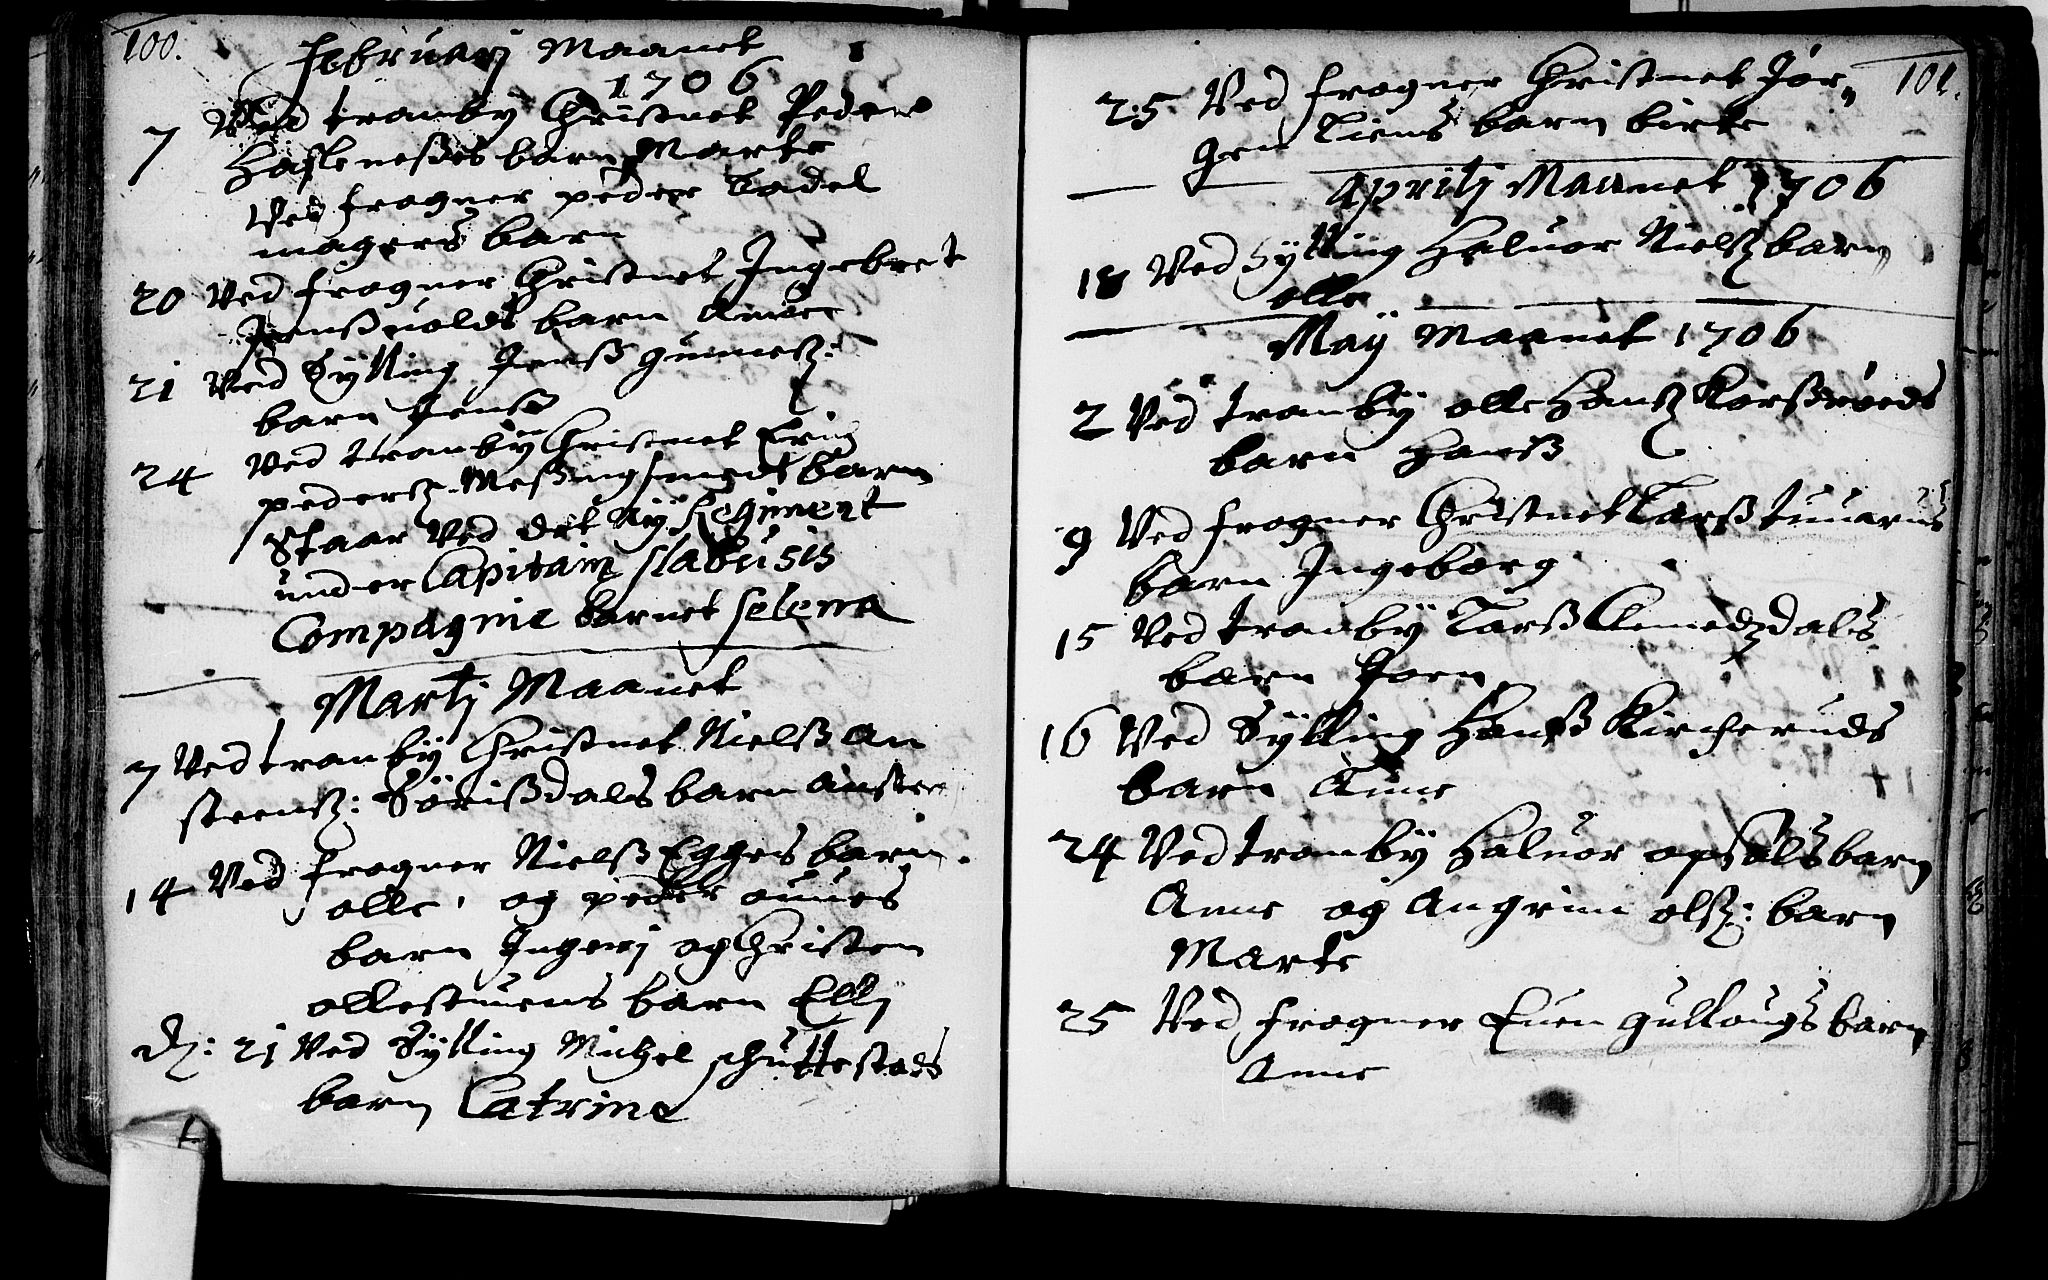 100.
Februarj Maanet
1706
7 Ved tranby Christnet Peder
Hasleneses barn Marte
Ved frogner peder Sadel
magers barn
20 Ved frogner Christnet Ingebret
Jensvolds barn Anne
21 Ved Sylling Jenß gunnerß:
barn Jenß
24 Ved tranby Christnet Erich
pederß. Meßingsmedt barn
Staar Ved det Nÿ Regiment
under Capitain slabusis
Compagnie barnet selema
Martj Maanet
7 Ved tranbÿ Christnet Nielß An
steenß: Sörißdals barn Ansten
14 Ved frogner Nielß Egges barn.
olle, og peder ouues
barn Ingerj og Christen
ollestuens barn Ellj
D: 21 Ved Sÿlling Michel schuttestads
barn Catrine
101.
25 Ved frogner Christnet Jör
gen Liens barn birte
Aprilj Maanet 1706
18 Ved Sylling Haluor Nielß barn
olle
Maÿ Maanet 1706
2 Ved tranbÿ olle Hanß Korßröeds
barn Hanß
9 Ved frogner Christnet Larß tuuerus
barn Ingeborg
15 Ved tranbÿ Larß Clemedzdals
barn Joen
16 Ved Sÿlling Hanß Kircheruds
barn Anne
24 Ved tranbÿ Haluor opsals barn
Anne og Angrim olß: barn
Marte
25 Ved frogner Euen gullougs barn
Anne